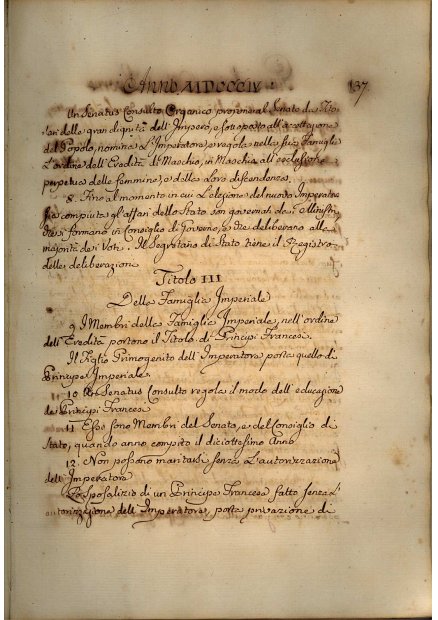 Anno MDCCCIV
137
Un Senatus Consulto Organico proposto al Senato da Tito-
lari delle gran dignità dell'Impero, e sottoposto all'accettazione
del Popolo, nomina l'Imperatore, e regola nella sua Famiglia
L'ordine dell'Eredità di Maschio, in Maschio all'esclusione
perpetua delle femmine, e della Loro discendenza.
8. Fino al momento in cui L'elezione del nuovo Imperatore
sia compiuta gl'affari dello Stato son governati da i Ministri
che si formano in Consiglio di Governo, e che deliberano alla
majorità de i Voti. Il Segretario di Stato tiene il Registro
delle deliberazioni
Titolo III
Della Famiglia Imperiale
9. I Membri della Famiglia Imperiale, nell'ordine
dell'Eredità portono il Titolo di Principi Francesi.
Il Figlio Primogenito dell'Imperatore porta quello di
Principe Imperiale
10. Un Senatus Consulto regola il modo dell'educazione
de Principi Francesi
11. Essi sono Membri del Senato, e del Consiglio di
Stato, quando anno compito il diciottesimo Anno
12. Non possono maritarsi senza L'autorizzazione
dell'Imperatore
Lo Sposalizio di un Principe Francese fatto senza L'
autorizzazione dell'Imperatore, porta privazione di